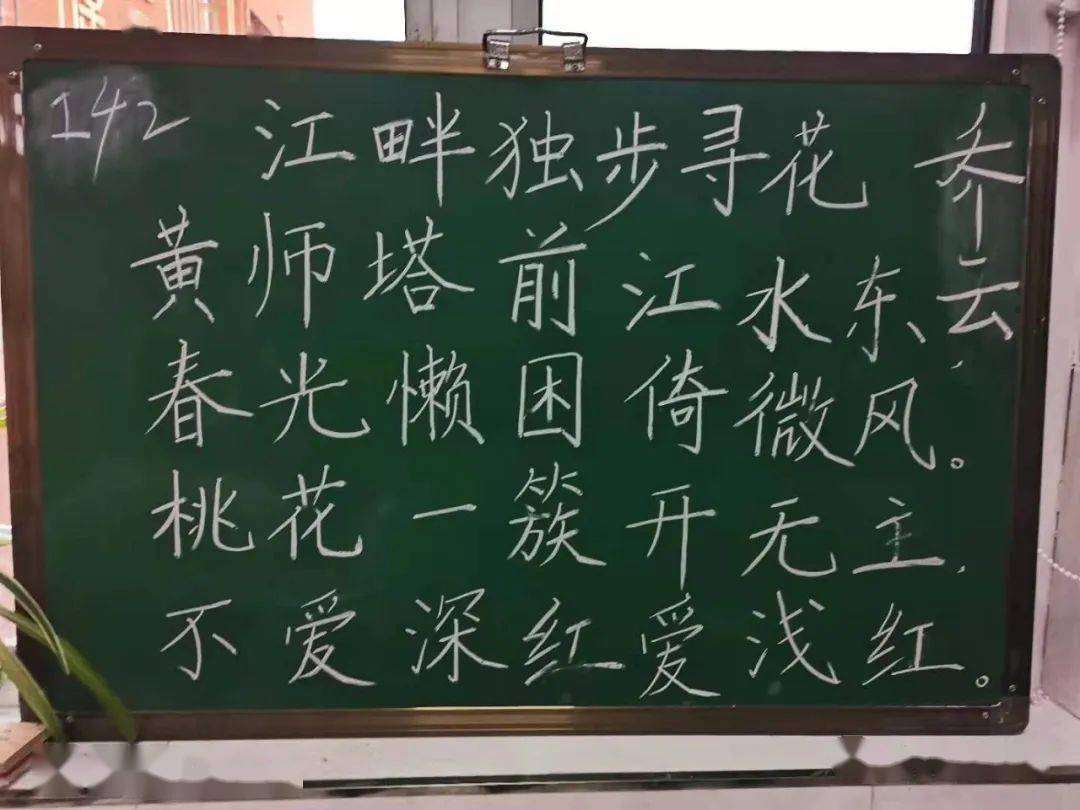 142 江畔独步寻花 乔云
黄师塔前江水东,
春光懒困倚微风。
桃花一簇开无主,
不爱深红爱浅红。